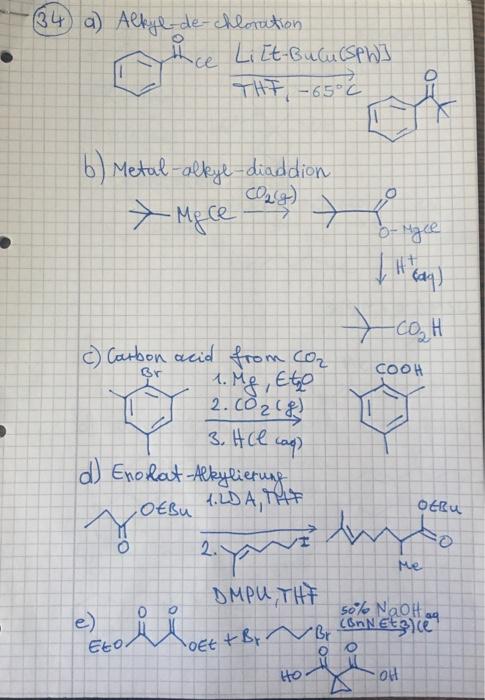 34 a) Alkyl-de-chloration
O
Cl Li[t-BuCu(SPh)]
THF, -65°C
O
b) Metal-alkyl-diaddion
MgCl CO2(g) O
O-MgCl
↓ H+ (aq)
CO2H
c) Carbon acid from CO2
Br 1. Mg, Et2O COOH
2. CO2(g)
3. HCl (aq)
d) Enolat-Alkylierung
OtBu 1. LDA, THF OtBu
O 2. I O
Me
DMPU, THF
e) O O 50% NaOH aq
EtO OEt + Br Br (BnNEt3)Cl
O O
HO OH